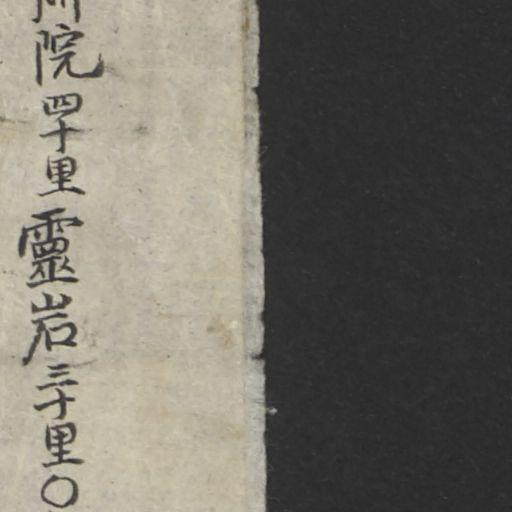 院四十里靈岩三十里〇